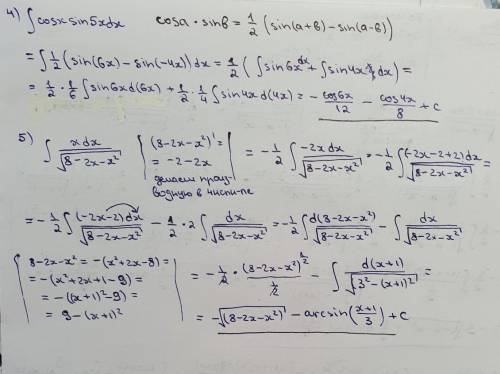 4) ∫ cosx sin5x dx   cosa · sinв = 1/2 (sin(a+в) - sin(a-в))
= ∫ 1/2 (sin(6x) - sin(-4x)) dx = 1/2 (∫ sin6x dx + ∫ sin4x dx) =
= 1/2 · 1/6 ∫ sin6x d(6x) + 1/2 · 1/4 ∫ sin4x d(4x) = - cos6x/12 - cos4x/8 + c
5) ∫ xdx/√(8-2x-x²)
(8-2x-x²)' =
= -2-2x
делаем произ-
водную в числи-ле
= -1/2 ∫ -2xdx/√(8-2x-x²) = -1/2 ∫ (-2x-2+2)dx/√(8-2x-x²) =
= -1/2 ∫ (-2x-2)dx/√(8-2x-x²) - 1/2 · 2 ∫ dx/√(8-2x-x²) = -1/2 ∫ d(8-2x-x²)/√(8-2x-x²) - ∫ dx/√(8-2x-x²)
8-2x-x² = -(x²+2x-8) =
= -(x²+2x+1-9) =
= -((x+1)²-9) =
= 9-(x+1)²
= -1/2 · (8-2x-x²)^(1/2)/(1/2) - ∫ d(x+1)/√(3²-(x+1)²) =
= -√(8-2x-x²) - arcsin((x+1)/3) + c